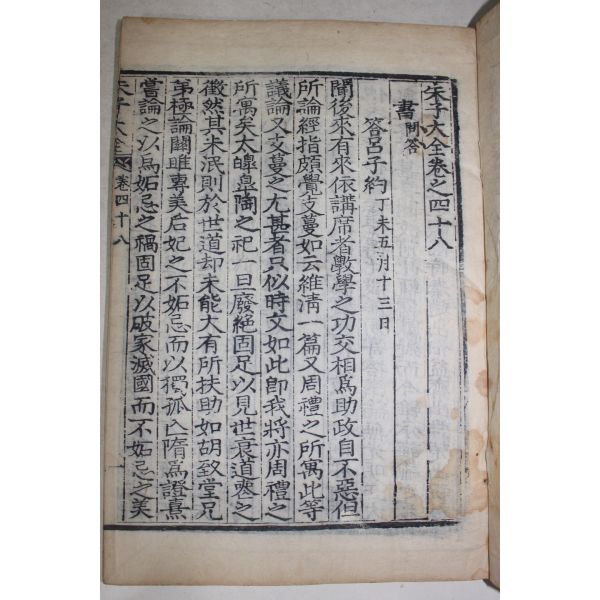 朱子大全卷之四十八
書 問答
答呂子約 丁未五月十三日
聞後來有來依講席者斅學之功交相爲助政自不惡但
所論經指頗覺支蔓如云維淸一篇又周禮之所寓此等
議論又支蔓之尤甚者只似時文如此卽我將亦周禮之
所寓矣太皥臯陶之祀一旦廢絶固足以見世衰道喪之
徵然其未泯則於世道却未能大有所扶助如胡致堂兄
弟極論關雎專美后妃之不妬忌而以獨孤亡隋爲證熹
嘗論之以爲妬忌之禍固足以破家滅國而不妬忌之美
朱子大全 卷四十八